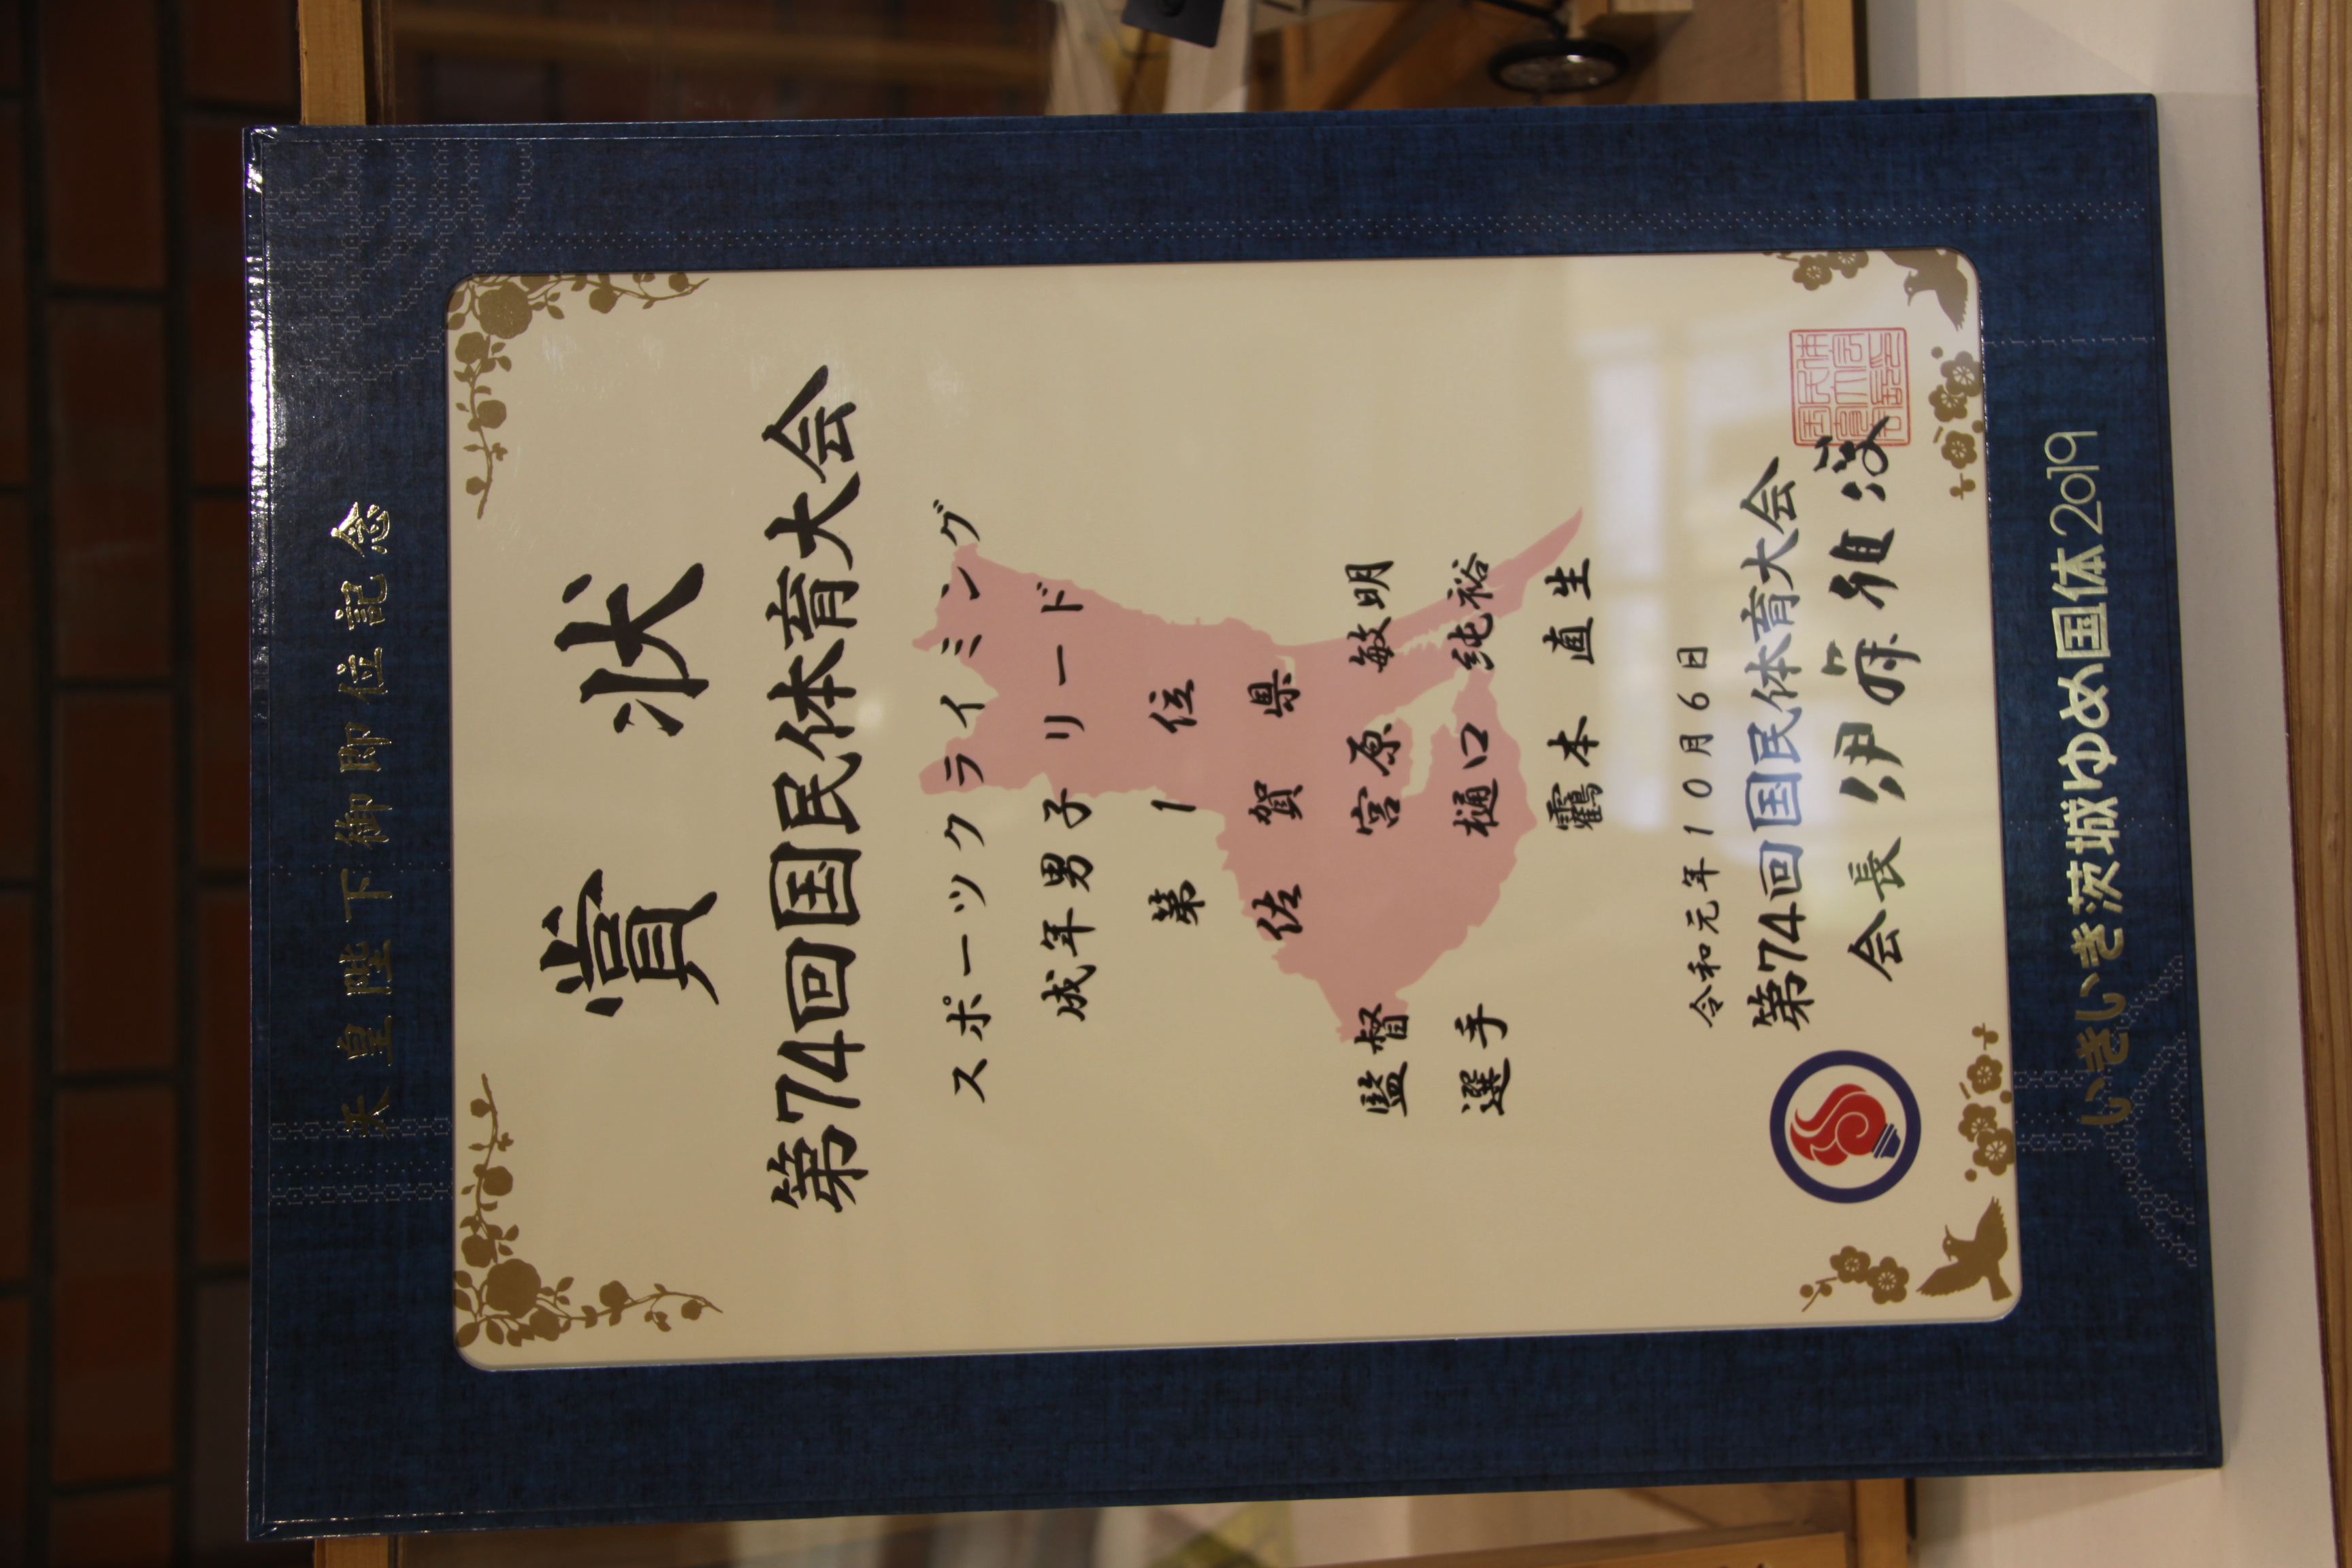 天皇陛下御即位記念
賞状
第74回国民体育大会
スポーツクライミング
成年男子リード
第1位
佐賀県
監督 宮原敏明
選手 樋口純裕
靍本直生
令和元年10月6日
第74回国民体育大会
会長 伊藤雅俊
いきいき茨城ゆめ国体2019